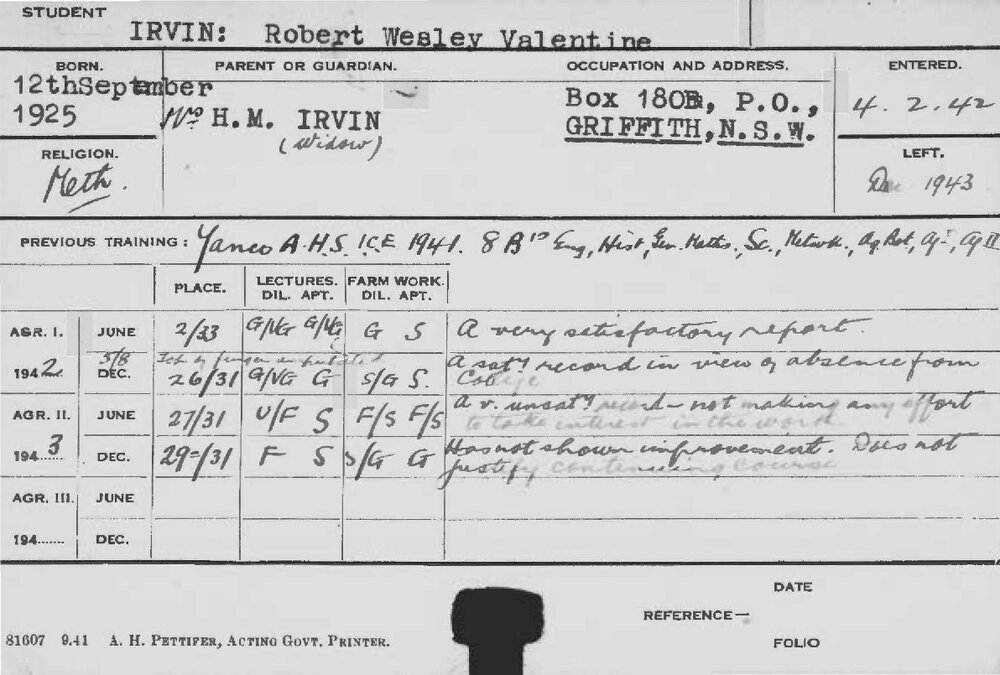 STUDENT
IRVIN: Robert Wesley Valentine
BORN. PARENT OR GUARDIAN. OCCUPATION AND ADDRESS. ENTERED.
12th September
1925
Mrs H.M. IRVIN
(Widow)
Box 180B, P.O.,
GRIFFITH, N.S.W.
4. 2. 42
RELIGION.
Meth.
LEFT.
Dec 1943
PREVIOUS TRAINING: Yanco A.H.S. I.C.E 1941. 8 B's Eng, Hist, Gen. Maths, Sc., Metwk, Ag Bot, Ag I, Ag II
PLACE. LECTURES. DIL. APT. FARM WORK. DIL. APT.
AGR. I. JUNE 2/33 G/VG G/VG G S A very satisfactory report.
5/8 of finger amputated
1942 DEC. 26/31 G/VG G S/G S. A sat'y record in view of absence from College
AGR. II. JUNE 27/31 U/F S F/S F/S A v. unsat'y record - not making any effort to take interest in the work
1943 DEC. 29=/31 F S S/G G Has not shown improvement. Does not justify continuing course
AGR. III. JUNE
194....... DEC.
DATE
REFERENCE—
FOLIO
81607 9.41 A. H. PETTIFER, ACTING GOVT. PRINTER.